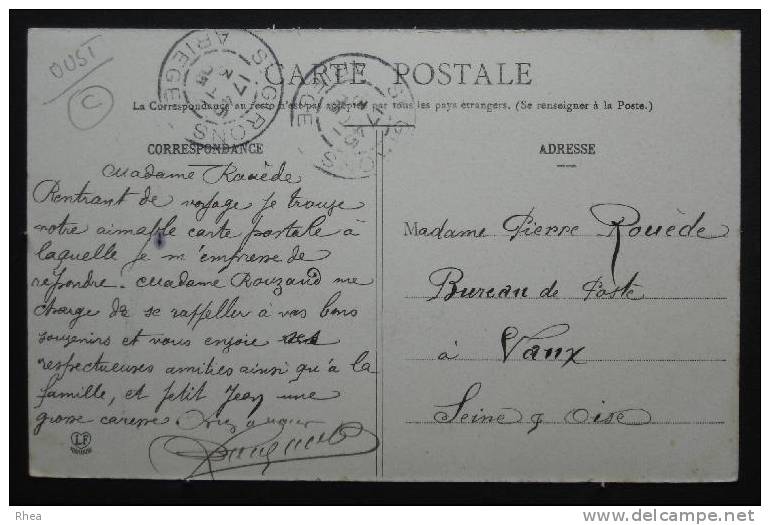 OUST
C
ST GIRONS
ARIEGE
17 45
CARTE POSTALE
La Correspondance au recto n'est pas acceptée par tous les pays étrangers. (Se renseigner à la Poste.)
CORRESPONDANCE
Madame Rouède
Rentrant de voyage je trouve
votre aimable carte postale à
laquelle je m'empresse de
répondre. Madame Rouzaud me
charge de se rappeller à vos bons
souvenirs et vous envoie ses
respectueuses amitiés ainsi qu'à la
famille, et petit Jean une
grosse caresse
LF
ADRESSE
Madame Pierre Rouède
Bureau de Poste
à Vaux
Seine & Oise
Rhea
www.delcampe.net